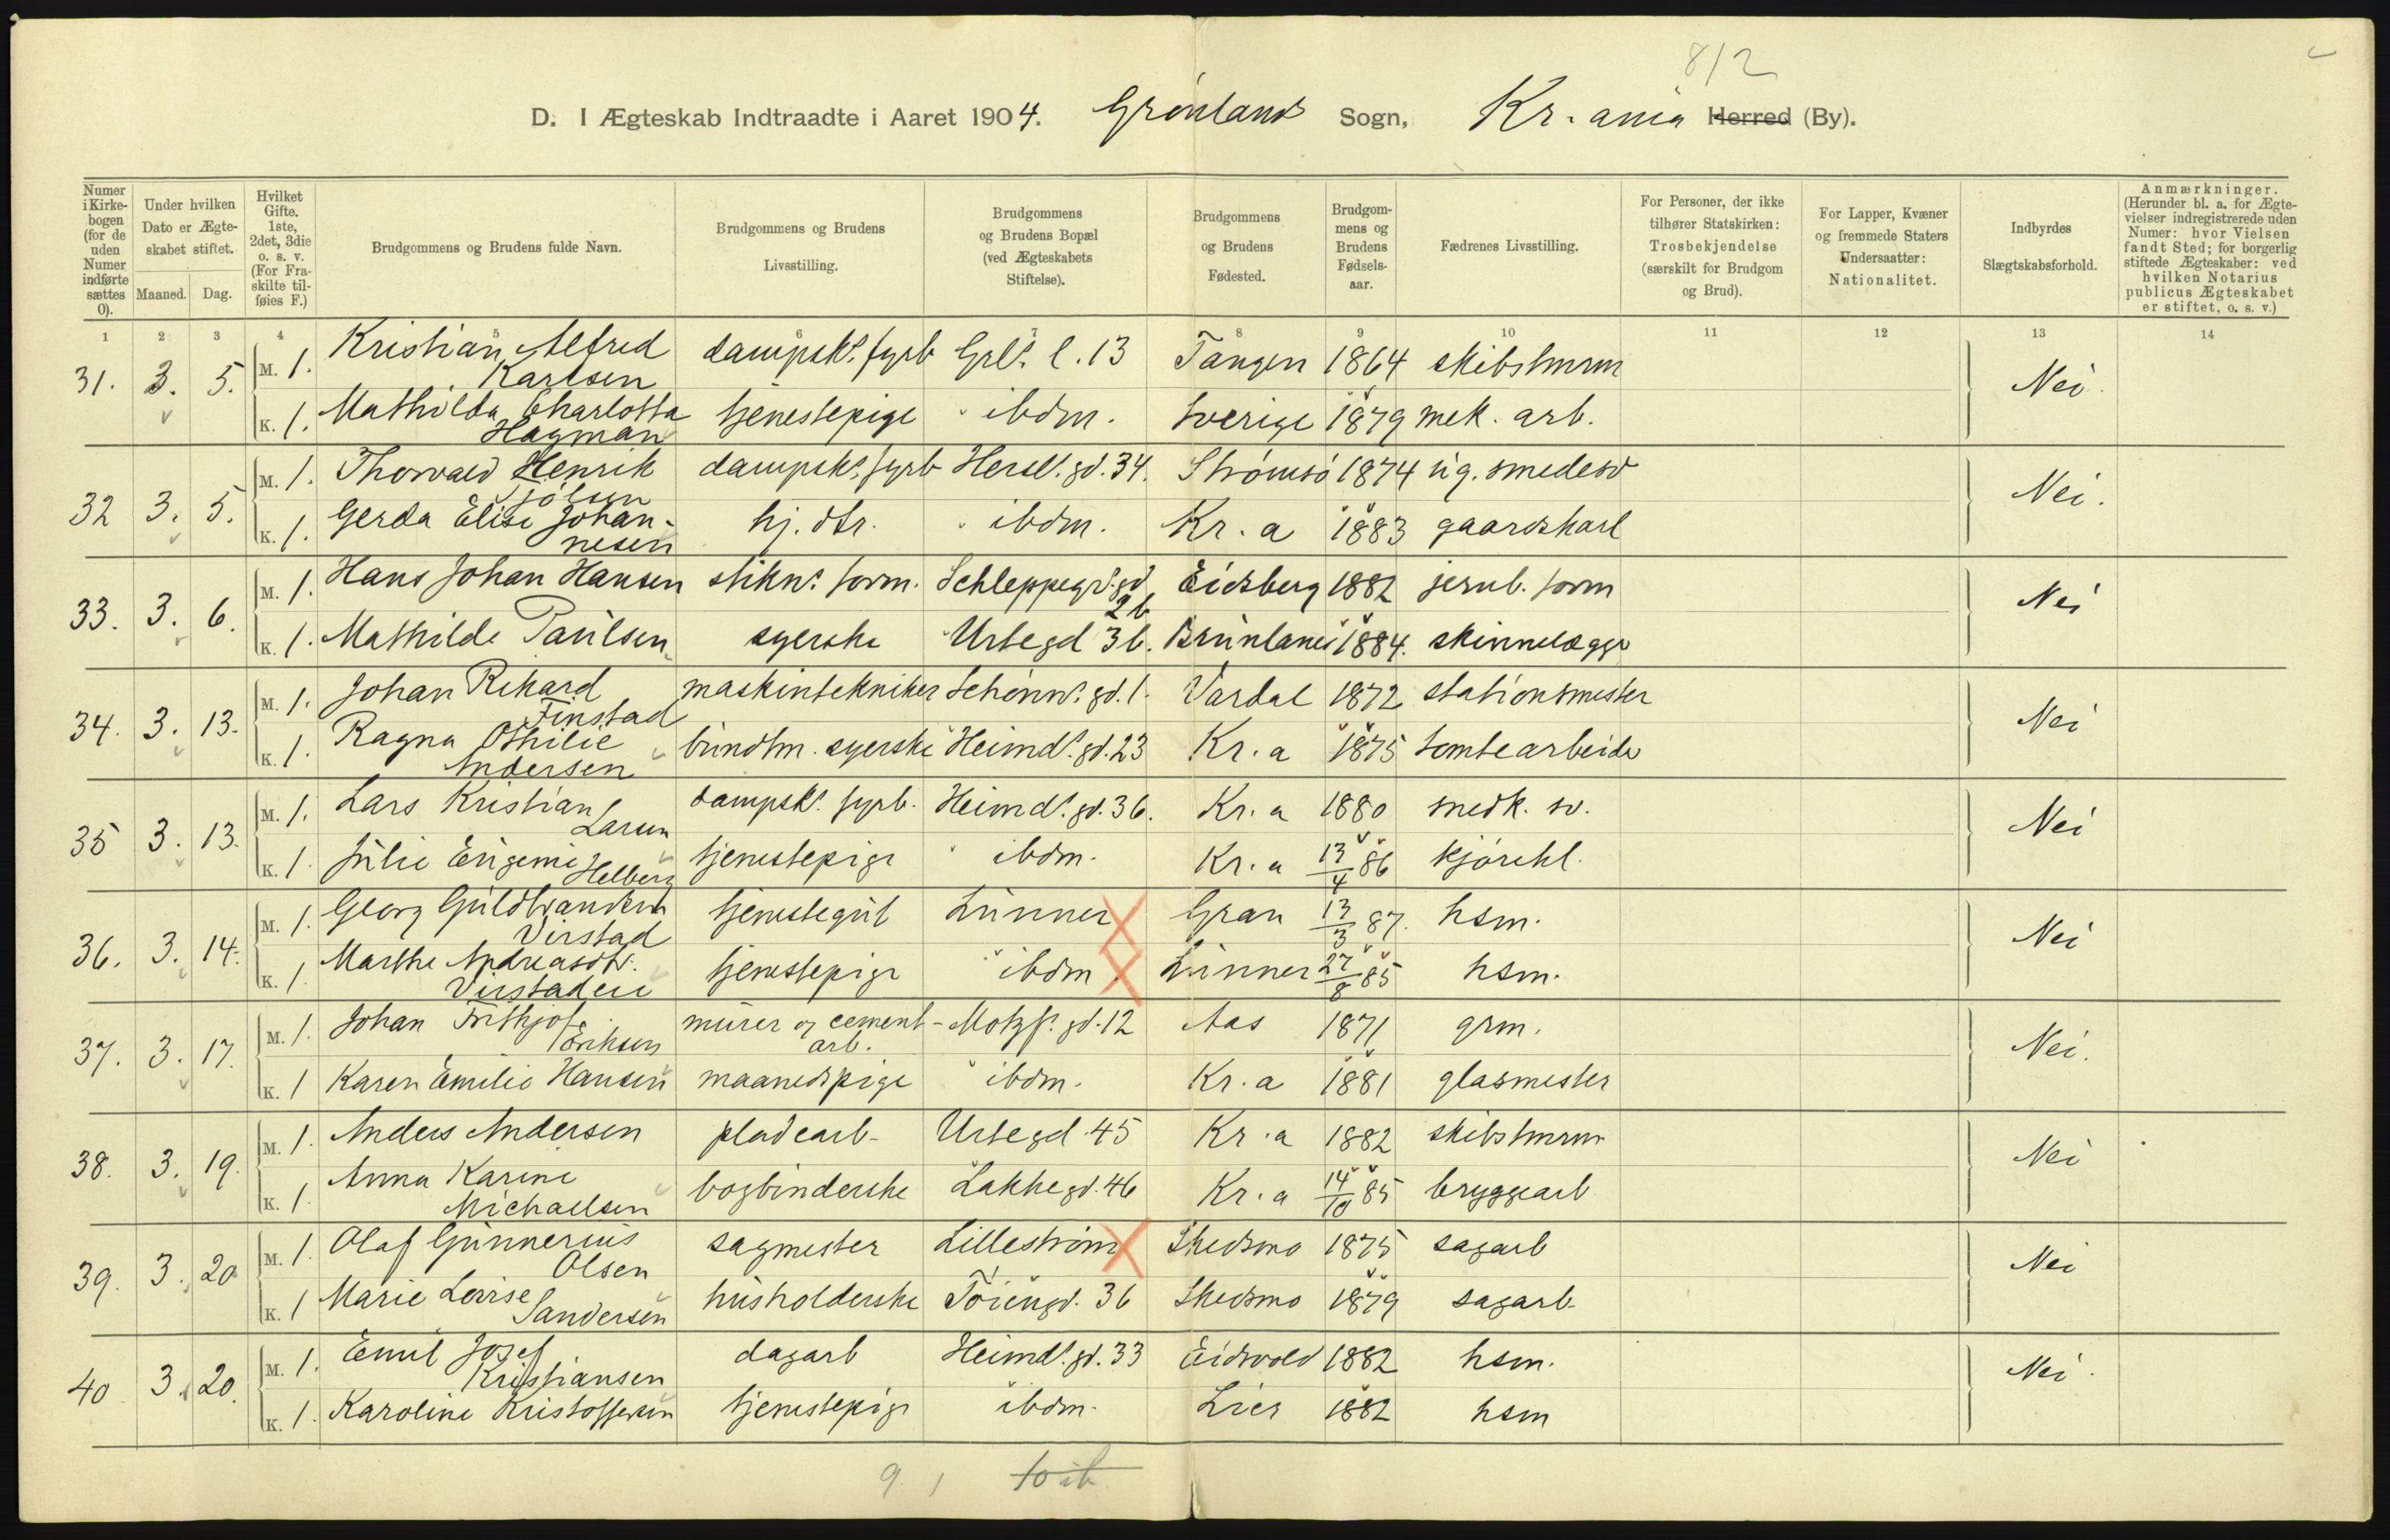 8/2
D. I Ægteskab Indtraadte i Aaret 1904. Grønland Sogn, Kr.ania Herred (By).
Numer i Kirkebogen (for de uden Numer indførte sættes 0).
Under hvilken Dato er Ægteskabet stiftet.
Maaned. Dag.
Hvilket Gifte. 1ste, 2det, 3die o. s. v. (For Fraskilte tilføies F.)
Brudgommens og Brudens fulde Navn.
Brudgommens og Brudens Livsstilling.
Brudgommens og Brudens Bopæl (ved Ægteskabets Stiftelse).
Brudgommens og Brudens Fødested.
Brudgommens og Brudens Fødselsaar.
Fædrenes Livsstilling.
For Personer, der ikke tilhører Statskirken: Trosbekjendelse (særskilt for Brudgom og Brud).
For Lapper, Kvæner og fremmede Staters Undersaatter: Nationalitet.
Indbyrdes Slægtskabsforhold.
Anmærkninger. (Herunder bl. a. for Ægtevielser indregistrerede uden Numer: hvor Vielsen fandt Sted; for borgerlig stiftede Ægteskaber: ved hvilken Notarius publicus Ægteskabet er stiftet, o. s. v.)
1 2 3 4 5 6 7 8 9 10 11 12 13 14
31. 3. 5. M. 1. Kristian Alfred Karlsen dampsks. fyrb Grls. l. 13 Tangen 1864 skibstmrm Nei.
K. 1. Mathilda Charlotta Hagman tjenestepige ibdm. Sverige 1879 mek. arb.
32 3. 5. M. 1. Thorvald Henrik dampsks. fyrb Hersl. gd. 34. Strømsö 1874 ug. smedesv Nei.
K. 1. Gerda Elise Johannesen hj. dtr. ibdm. Kr.a 1883 gaardskarl
33. 3. 6. M. 1. Hans Johan Hansen stikns. form. Schleppegr. gd 2b Eidsberg 1882 jernb. form Nei
K. 1. Mathilde Paulsen syerske Urtegd 3b. Brunlanes 1884. skinnelægger
34. 3. 13. M. 1. Johan Rikard Finstad maskintekniker Schønns. gd. 1. Vardal 1872 stationsmester Nei
K. 1. Ragna Othilie Andersen bundtm. syerske Heimds. gd. 23 Kr.a 1875 tomtearbeider
35 3. 13. M. 1. Lars Kristian Larsen dampsks. fyrb. Heimds. gd. 36. Kr.a 1880 snedk. sv. Nei
K. 1. Julie Eugenie Helberg tjenestepige ibdm. Kr.a 13/4 86 kjörekl.
36. 3. 14. M. 1. Georg Guldbrandsen Virstad tjenestegut Lunner Gran 13/3 87. hsm. Nei
K. 1. Marthe Andreasdtr. Virstadeie tjenestepige ibdm Lunner 27/8 85 hsm.
37. 3. 17. M. 1. Johan Frithjof Eriksen murer og cementarb. Motzf. gd. 12 Aas 1871 grm. Nei.
K. 1 Karen Emilie Hansen maanedspige ibdm. Kr.a 1881 glasmester
38. 3. 19. M. 1. Anders Andersen pladearb. Urtegd 45 Kr.a 1882 skibstmrm Nei
K. 1. Anna Karine Michaelsen bogbinderske Lakkegd. 46 Kr.a 14/10 85 bryggearb
39. 3. 20 M. 1. Olaf Gunnerius Olsen sagmester Lilleström Skedsmo 1875 sagarb Nei
K. 1 Marie Lovise Sandersen husholderske Töiengd. 36 Skedsmo 1879 sagarb.
40 3. 20. M. 1. Emil Josef Kristiansen dagarb Heimds. gd. 33 Eidsvold 1882 hsm. Nei.
K. 1. Karoline Kristoffersen tjenestepige ibdm. Lier 1882 hsm
9. 1 10 ib